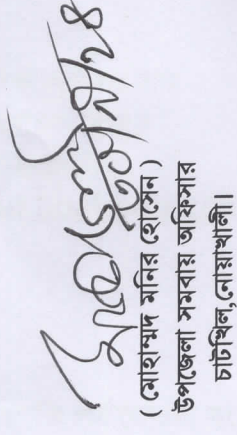 ( মোহাম্মদ মনির হোসেন )
উপজেলা সমবায় অফিসার
চাটখিল,নোয়াখালী।